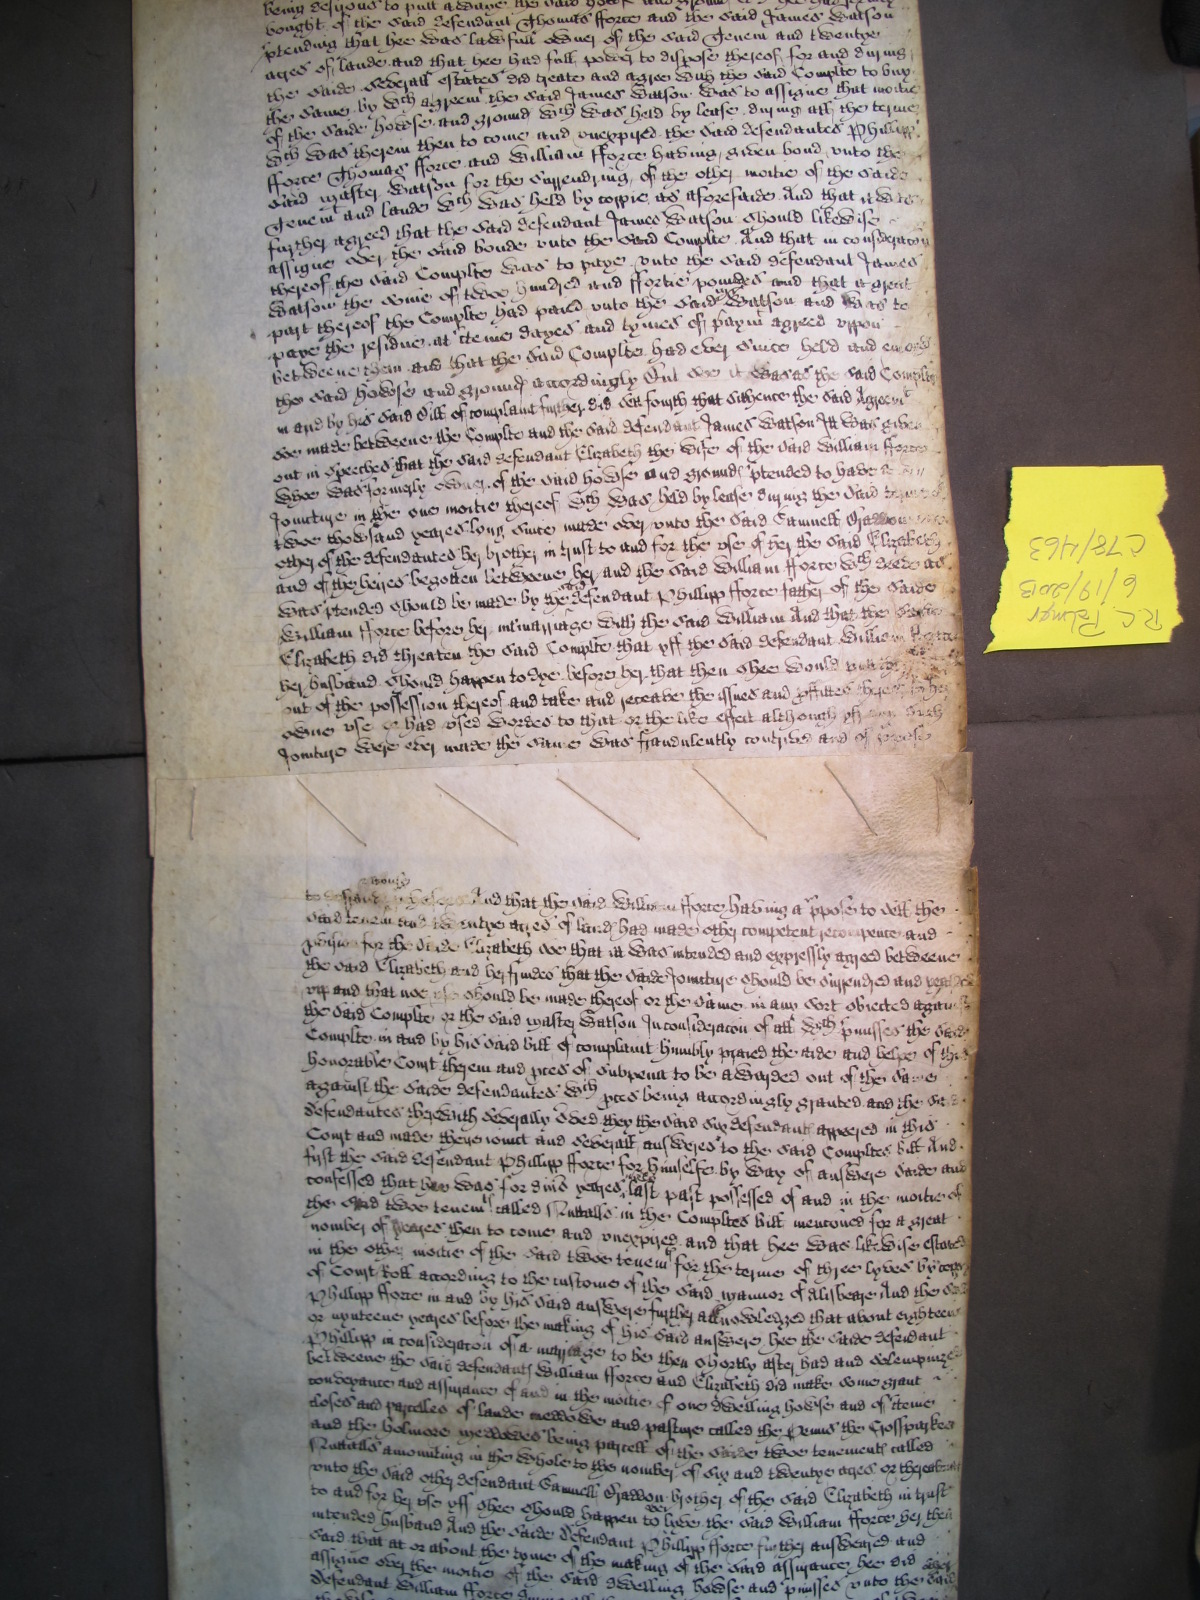 bought of the said defendant Thomas fforce and the said James Watson
ptending that hee was lawfull owner of the said Tenem and twentye
acres of lande and that hee had full power to dispose thereof for and during
the saide severall estates did treate and agree with the said Complte to buy
the same by wch agreemt the said James Watson was to assigne that moitie
of the saide howse and ground wch was held by lease during all the terme
wch was therein then to come and unexpired the said defendantes Phillipp
fforce Thomas fforce and William fforce having given bond unto the
said master Watson for the surrendring of the other moitie of the saide
Tenemt and lande wch was held by coppie as aforesaide And that it was
further agreed that the said defendant James Watson should likewise
assigne over the said bonde unto the said Complte And that in consideracon
thereof the said Complte was to paye unto the said defendant James
Watson the some of twoe hundred and ffortie poundes and that a great
part thereof the Complte had paid unto the said Watson and was to
paye the residue at some dayes and tymes of paymt agreed uppon
betweene them and that the said Complte had ever since held and
the said howse and ground accordingly But soe it was as the said Complte
in and by his said Bill of complaint further did sett fourth that sithence the said Agreemt
soe made betweene the Complte and the said defendant James Watson It was given
out in speeches that the said defendant Elizabeth the wife of the said William fforce
whoe was formerly owner of the said howse and ground ptended to have a
Joincture in the one moitie thereof wch was held by lease during the said
twoe thowsand yeares long since made over unto the said Samuell
other of the defendantes her brother in trust to and for the use of her the said Elizabeth
and of the heires begotten betweene her and the said William fforce wch deede as
was ptended should be made by the defendant Phillipp fforce father of the saide
William fforce before her intmarriage with the said William And that the
Elizabeth did threaten the said Complte that yff the said defendant William
her husband should happen to dye before her that then shee would
out of the possession thereof and take and receave the issues and pffittes
owne use or had used wordes to that or the like effect although yf such
Joincture were ever made the same was fraudulently contrived and of purpose
to And that the said William fforce having a ppose to sell the
said tenemt and twentye acres of land had made other competent recompence and
for the saide Elizabeth soe that it was intended and expressly agreed betweene
the said Elizabeth and her frindes that the saide Joincture should be surrendred and
upp and that noe use should be made thereof or the same in any sort obiected against
the said Complte or the said master Watson In consideracon of all wch pmisses the said
Complte in and by his said bill of complaint humbly praied the aide and helpe of this
honorable Court therein and pces of subpena to be awarded out of the same
against the saide defendantes wch pces being accordingly granted and the said
defendantes therewith severally sved they the said six defendants appeered in this
Court and made there ioinct and severall answeres to the said Compltes bill And
first the said defendant Phillipp fforce for himselfe by way of answere saide and
confessed that hee was for divs yeares last past possessed of and in the moitie of
the said twoe tenemts called Nuttalls in the Compltes Bill mencioned for a great
number of yeares then to come and unexpired and that hee was likewise estated
in the other moitie of the said twoe tenemts for the terme of three lyves by copy
of Court Roll according to the custome of the said mannor of Alisbeare And the said
Phillipp fforce in and by his said answere further acknowledged that about eighteene
or nynteene yeares before the making of his said answere hee the saide defendant
Phillipp in consideracon of a marriage to be then shortly after had and solempnized
betweene the said defendants William fforce and Elizabeth did make some grant
conveyance and assurance of and in the moitie of one dwelling howse and of some
closes and parcelles of lande meddowe and pasture called the the Crosseparkes
and the holmore meddowes being parcell of the saide twoe tenements called
Nuttalls amounting in the whole to the nomber of six and twentye acres or thereabouts
unto the said other defendant Samuell brother of the said Elizabeth in trust
to and for her use yff shee should happen to over live the said William fforce her then
intended husband And the saide defendant Phillipp fforce further answeared and
said that at or about the tyme of the making of the said assurance hee did
assigne over the moitie of the said dwelling howse and pmisses unto the said
defendant William fforce
R.C. Palmer
6/19/2013
C78/463